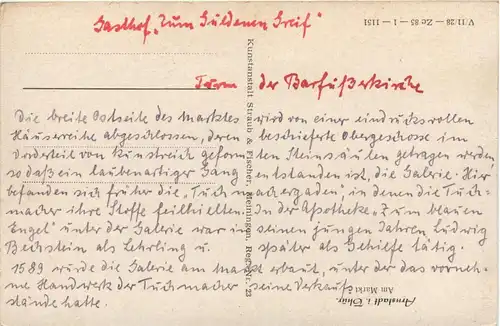 Gasthof „Zum Guldenen Greif"
Turm der Barfüßerkirche
Die breite Ostseite des Marktes wird von einer eindrucksvollen
Häuserreihe abgeschlossen, deren beschieferte Obergeschosse im
Vorderteil von kunstreich geformten Steinsäulen getragen werden,
sodaß ein laubenartiger Gang entstanden ist, die Galerie. Hier
befanden sich früher die „Tuchmachergaden", in denen die Tuch-
macher ihre Stoffe feilhielten. In der Apotheke „Zum blauen
Engel" unter der Galerie war in seinen jungen Jahren Ludwig
Bechstein als Lehrling u. später als Gehilfe tätig.
1589 wurde die Galerie am Markt erbaut, unter der das vorneh-
me Handwerk der Tuchmacher seine Verkaufs-
stände hatte.
Kunstanstalt Straub & Fischer, Meiningen. Reg.-Nr. 23
V/11/28 — Ze 85 — 1 — 1151
Arnstadt i. Thür.
Am Markt